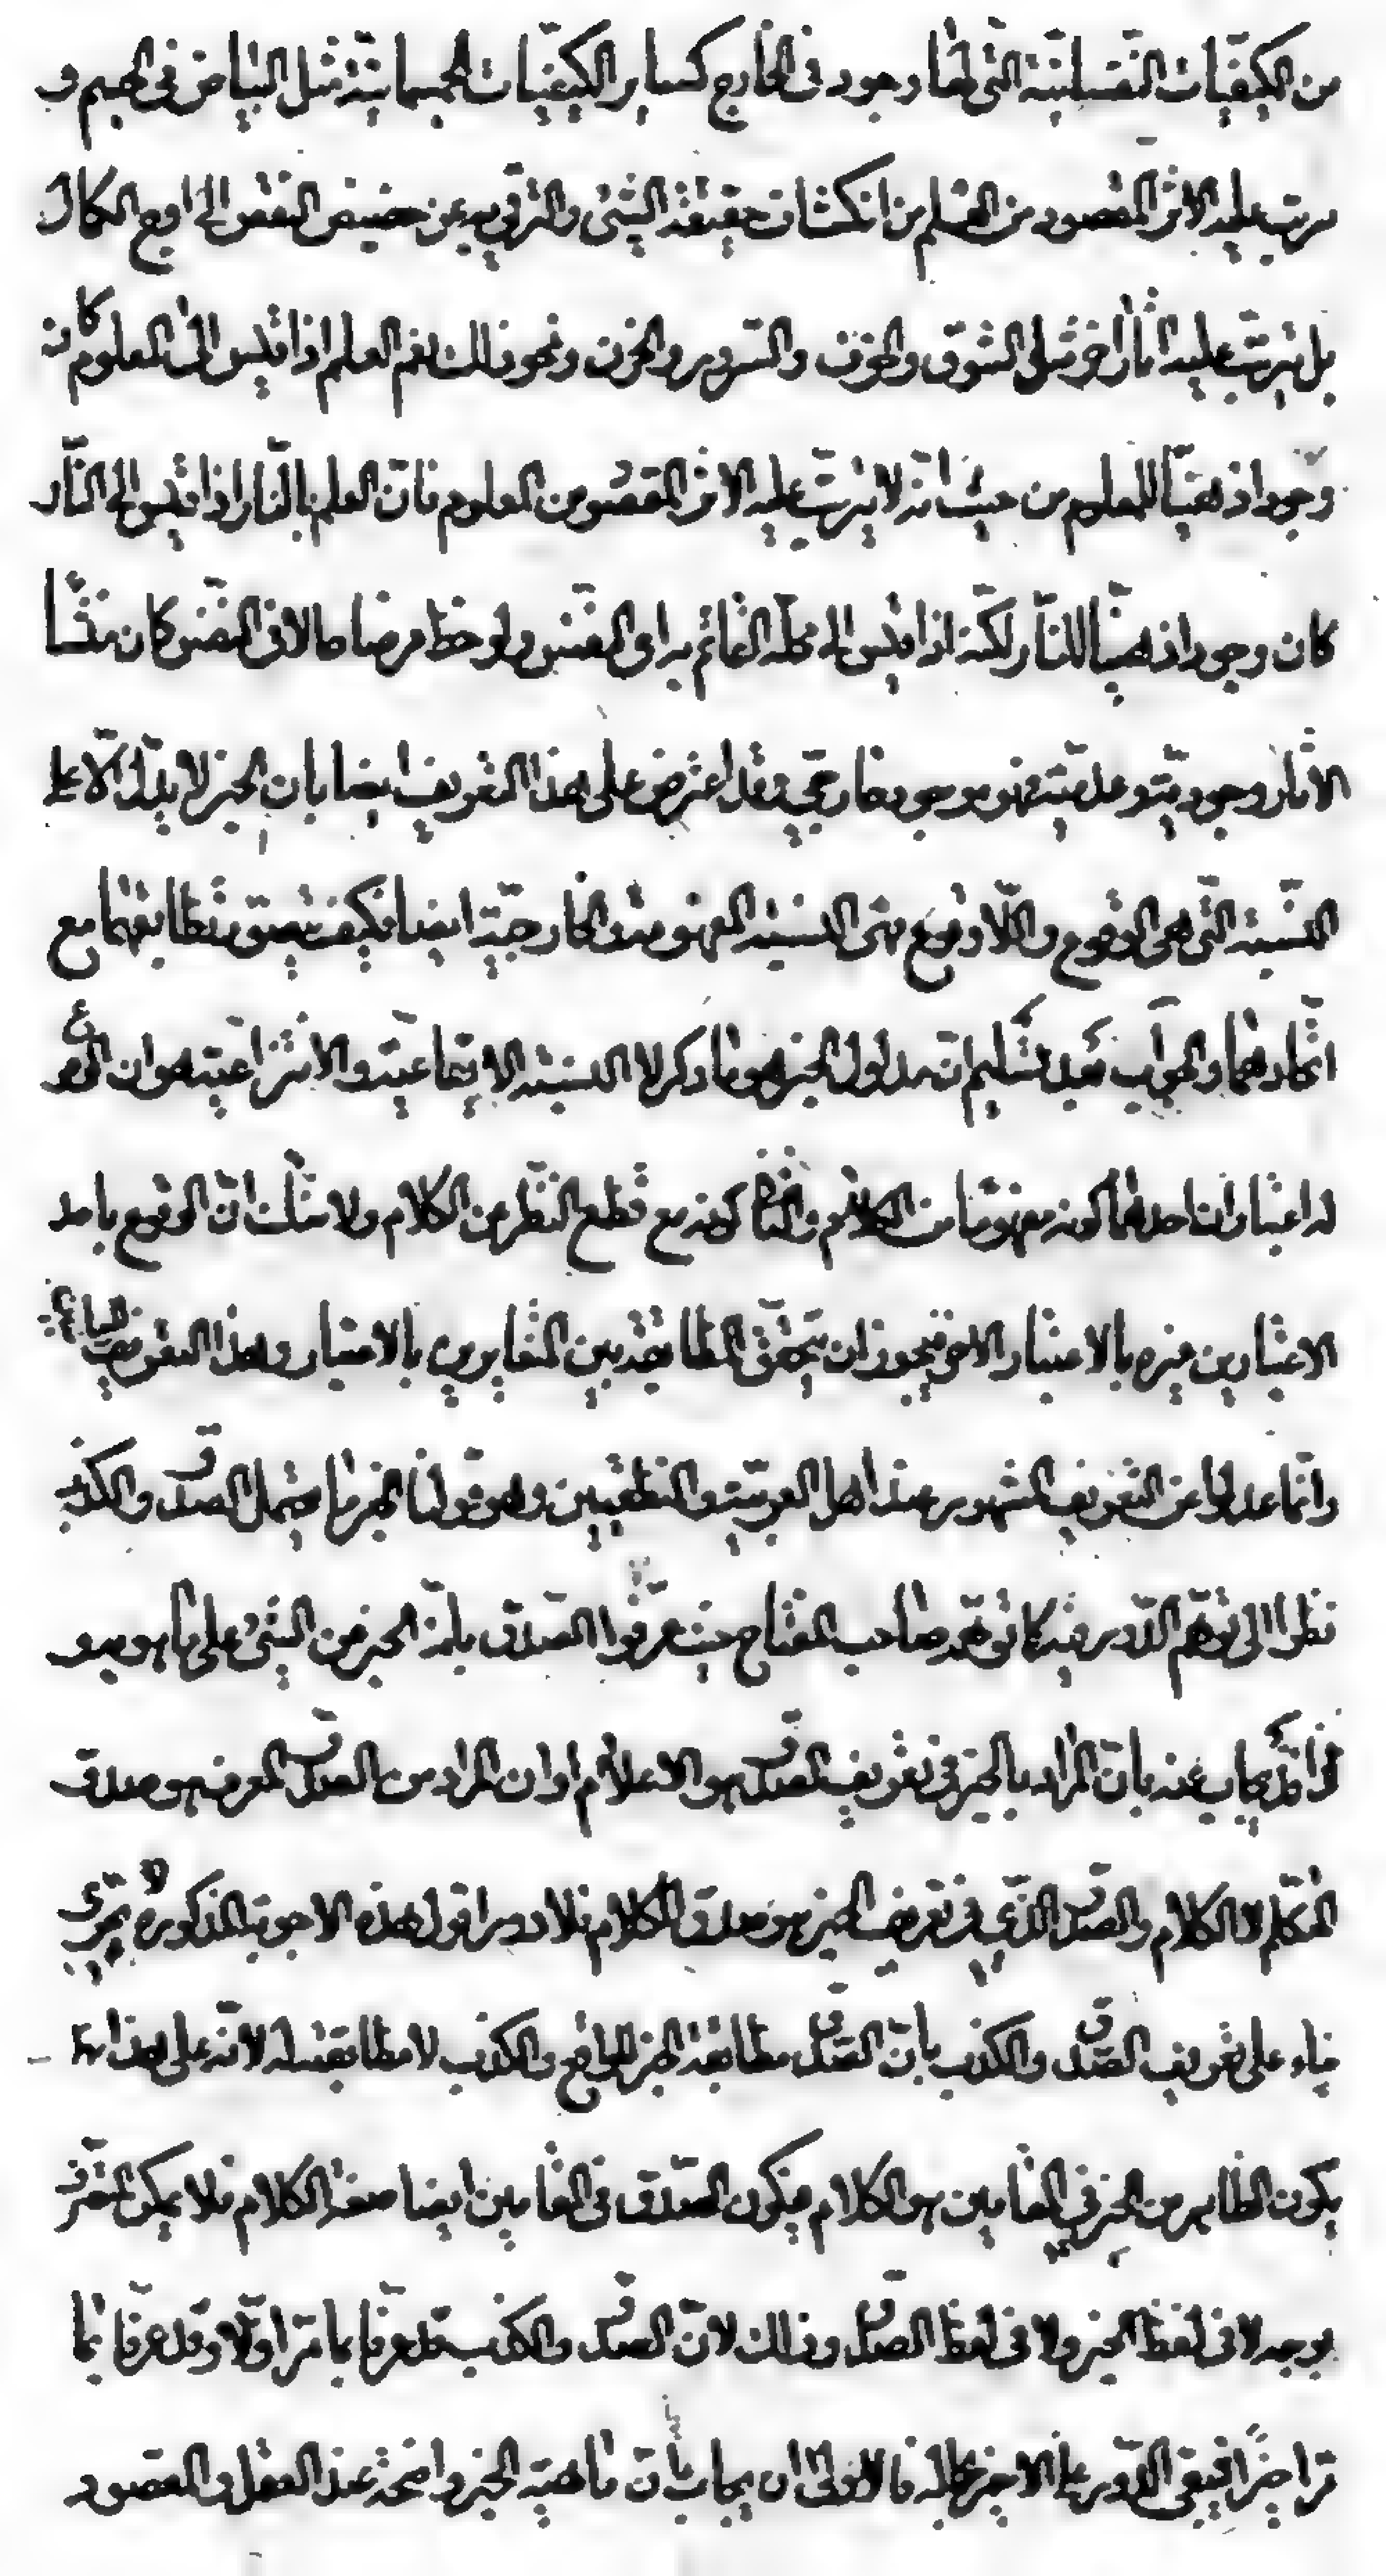 من الكيفيات النفسانية التى لها وجود فى الخارج كساير الكيفيات الجسمانية مثل البياض فى الجسم و
يترتب عليه الاثر المقصود من العلم من انكشاف حقيقة الشيئ والترقى به عن حضيض النقص الى اوج الكمال
بل يترتب عليه اثار اخر مثل الشوق والخوف والسرور والحزن ونحو ذلك نعم العلم اذا قيس الى المعلوم كان
وجودا ذهنيا للمعلوم من حيث انه لا يترتب عليه الاثر المقصود من المعلوم فان العلم بالنار اذا قيس الى النار
كان وجودا ذهنيا للنار لكنه اذا قيس الى محله القائم به اى النفس ولوحظ عرضا حالا فى النفس كان منشأ
الاثار وجودية وعدمية فهو موجود خارجى وقد اعترض على هذا التعريف ايضا بان الخبر لا يدل الا على
النسبة التى هى الوقوع واللاوقوع فهى النسبة المفهومة والخارجية ايضا فكيف يتصور تطابقهما مع
اتحادهما والجواب بعد تسليم ان مدلول الخبر هو ما ذكر لا النسبة الايقاعية والانتزاعية هو ان الوقوع
له اعتباران احدهما كونه مفهوما من الكلام والثانى كونه مع قطع النظر عن الكلام ولا شك ان الوقوع باحد
الاعتبارين غيره بالاعتبار الاخر فيجوز ان يتحقق المطابقة بين المتغايرين بالاعتبار وهذا التعريف
وانما عدلوا عن التعريف المشهور عند اهل العربية والمنطقيين وهو قولنا الخبر ما يحتمل الصدق والكذب
نظرا الى توهم الدور فيه كما توهمه صاحب المفتاح حيث عرفوا الصدق بانه الخبر عن الشيئ على ما هو به و
قد يجاب عنه بان المراد بالخبر فى تعريف الصدق هو الاعلام او ان المراد من الصدق المعرف هو صدق
المتكلم لا الكلام والصدق الذى فى تعريف الخبر هو صدق الكلام فلا دور اقول هذه الاجوبة المذكورة لا تجرى
بناء على تعريف الصدق والكذب بان الصدق مطابقة الخبر للواقع والكذب لا مطابقته له لانه على هذا
يكون الظاهر من الخبر فى المقامين هو الكلام فيكون الصدق فى المقامين ايضا صفة الكلام فلا يمكن التصرف
بوجه لا فى لفظ الخبر ولا فى لفظ الصدق وذلك لان الصدق والكذب قد عرفا بما مر اولا وقد عرفا بما
مر اخيرا فيبقى الدور على الاخير بحاله فالاولى ان يجاب بان ماهية الخبر واضحة عند العقل والمقصود